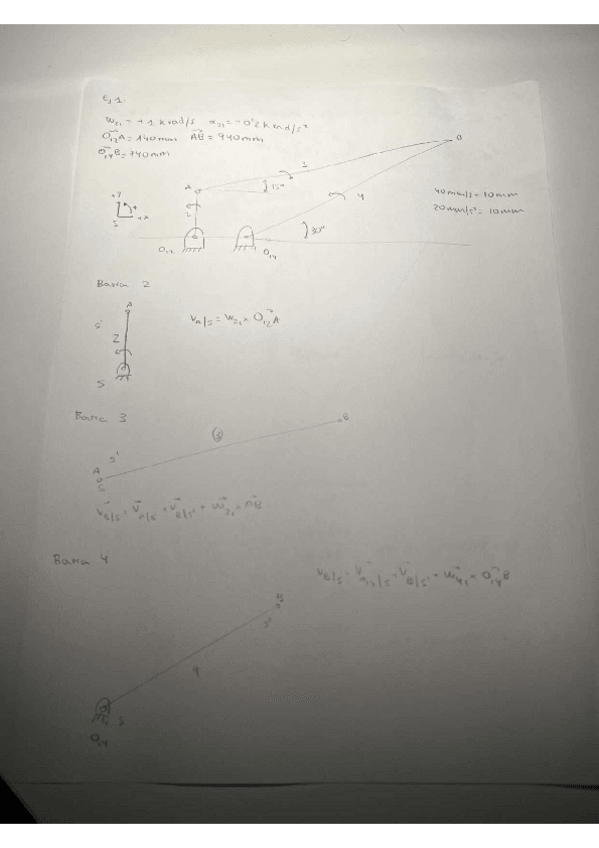 Ej 1.
w₂₁ = +1 k rad/s   α₂₁ = -0'2 k rad/s²
O₁₂A = 140mm   AB = 940mm
O₁₄B = 740mm
B
3
A
15º
4
40mm/s = 10mm
20mm/s² = 10mm
+Y
+
+X
S
2
30º
O₁₂
O₁₄
Barra 2
A
S'
2
V A/S = w₂₁ × O₁₂A
S
Barra 3
B
3
S'
A
S
V B/S = V A/S + V B/S' + w₃₁ × AB
Barra 4
V B/S = V O₁₄/S + V B/S' + w₄₁ × O₁₄B
B
S'
4
S
O₁₄